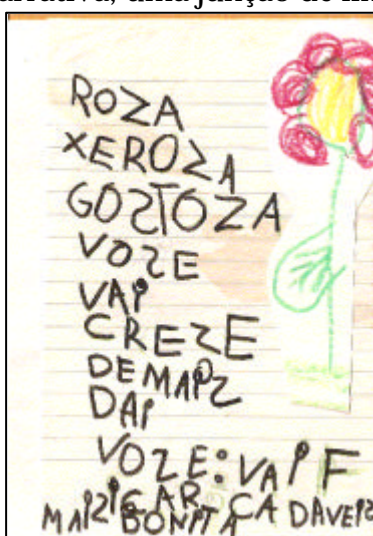 uma junção de
ROZA
XEROZA
GOZTOZA
VOZE
VAI
CREZE
DEMAIZ
DAI
VOZE: VAI F
ICAR CA DAVEIZ
MAIZ BONITA